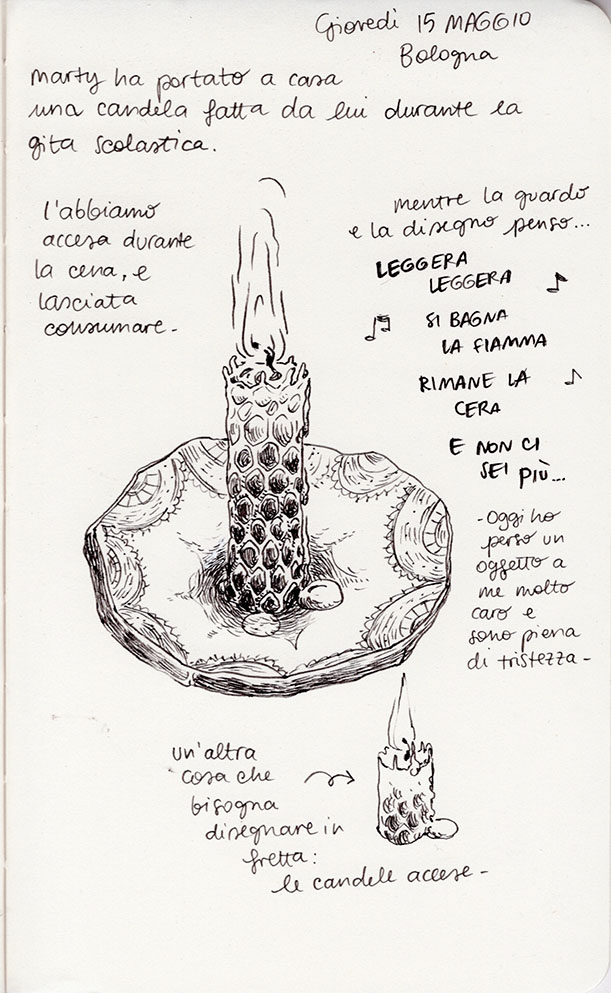 Giovedì 15 MAGGIO
Bologna
marty ha portato a casa
una candela fatta da lui durante la
gita scolastica.
l'abbiamo
accesa durante
la cena, e
lasciata
consumare -
mentre la guardo
e la disegno penso...
LEGGERA
LEGGERA
SI BAGNA
LA FIAMMA
RIMANE LA
CERA
E NON CI
SEI PIÙ...
- Oggi ho
perso un
oggetto a
me molto
caro e
sono piena
di tristezza -
un'altra
cosa che
bisogna
disegnare in
fretta:
le candele accese -